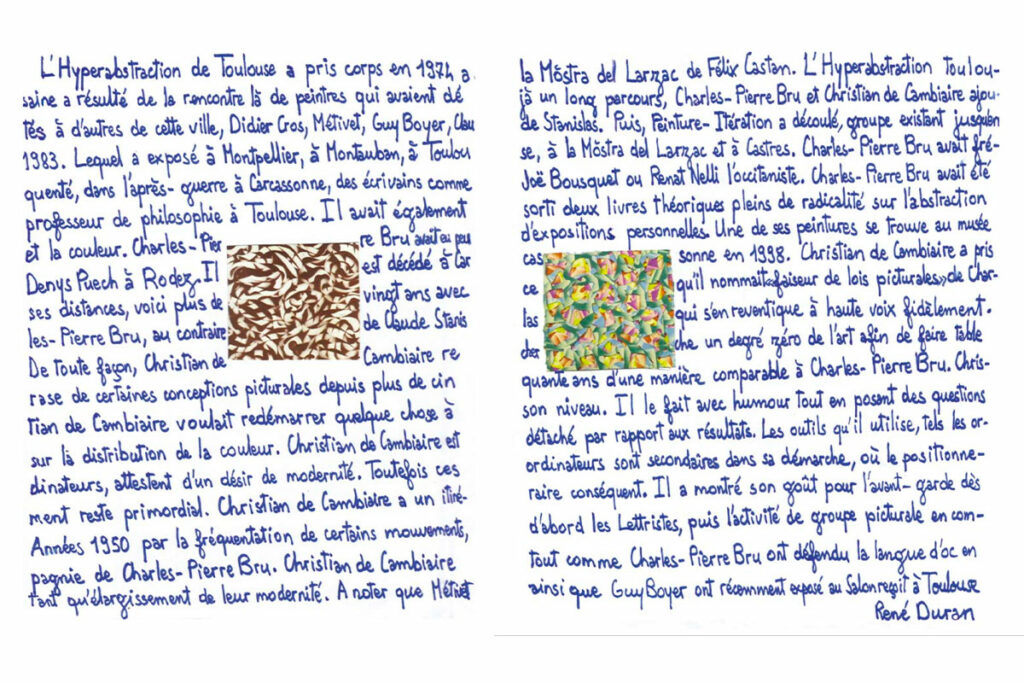 L'Hyperabstraction de Toulouse a pris corps en 1974 a la Mòstra del Larzac de Félix Castan. L'Hyperabstraction toulou-
saine a résulté de la rencontre là de peintres qui avaient dé jà un long parcours, Charles-Pierre Bru et Christian de Cambiaire ajou-
tés à d'autres de cette ville, Didier Cros, Métivet, Guy Boyer, Clau de Stanislas. Puis, Peinture-Itération a découlé, groupe existant jusqu'en
1983. Lequel a exposé à Montpellier, à Montauban, à Toulou se, à la Mòstra del Larzac et à Castres. Charles-Pierre Bru avait fré-
quenté, dans l'après-guerre à Carcassonne, des écrivains comme Joë Bousquet ou Renat Nelli l'occitaniste. Charles-Pierre Bru avait été
professeur de philosophie à Toulouse. Il avait également sorti deux livres théoriques pleins de radicalité sur l'abstraction
et la couleur. Charles-Pier re Bru avait eu peu d'expositions personnelles. Une de ses peintures se trouve au musée
Denys Puech à Rodez. Il est décédé à Car cas sonne en 1998. Christian de Cambiaire a pris
ses distances, voici plus de vingt ans avec ce qu'il nommait «faiseur de lois picturales» de Char-
les-Pierre Bru, au contraire de Claude Stanis las qui s'en reventique à haute voix fidèlement.
De toute façon, Christian de Cambiaire re cher che un degré zéro de l'art afin de faire table
rase de certaines conceptions picturales depuis plus de cin quante ans d'une manière comparable à Charles-Pierre Bru. Chris-
tian de Cambiaire voulait redémarrer quelque chose à son niveau. Il le fait avec humour tout en posant des questions
sur la distribution de la couleur. Christian de Cambiaire est détaché par rapport aux résultats. Les outils qu'il utilise, tels les or-
dinateurs, attestent d'un désir de modernité. Toutefois ces ordinateurs sont secondaires dans sa démarche, où le positionne-
ment reste primordial. Christian de Cambiaire a un itiné- raire conséquent. Il a montré son goût pour l'avant-garde dès
Années 1950 par la fréquentation de certains mouvements, d'abord les Lettristes, puis l'activité de groupe picturale en com-
pagnie de Charles-Pierre Bru. Christian de Cambiaire tout comme Charles-Pierre Bru ont défendu la langue d'oc en
tant qu'élargissement de leur modernité. A noter que Métivet ainsi que Guy Boyer ont récemment exposé au Salon reçit à Toulouse
René Duran